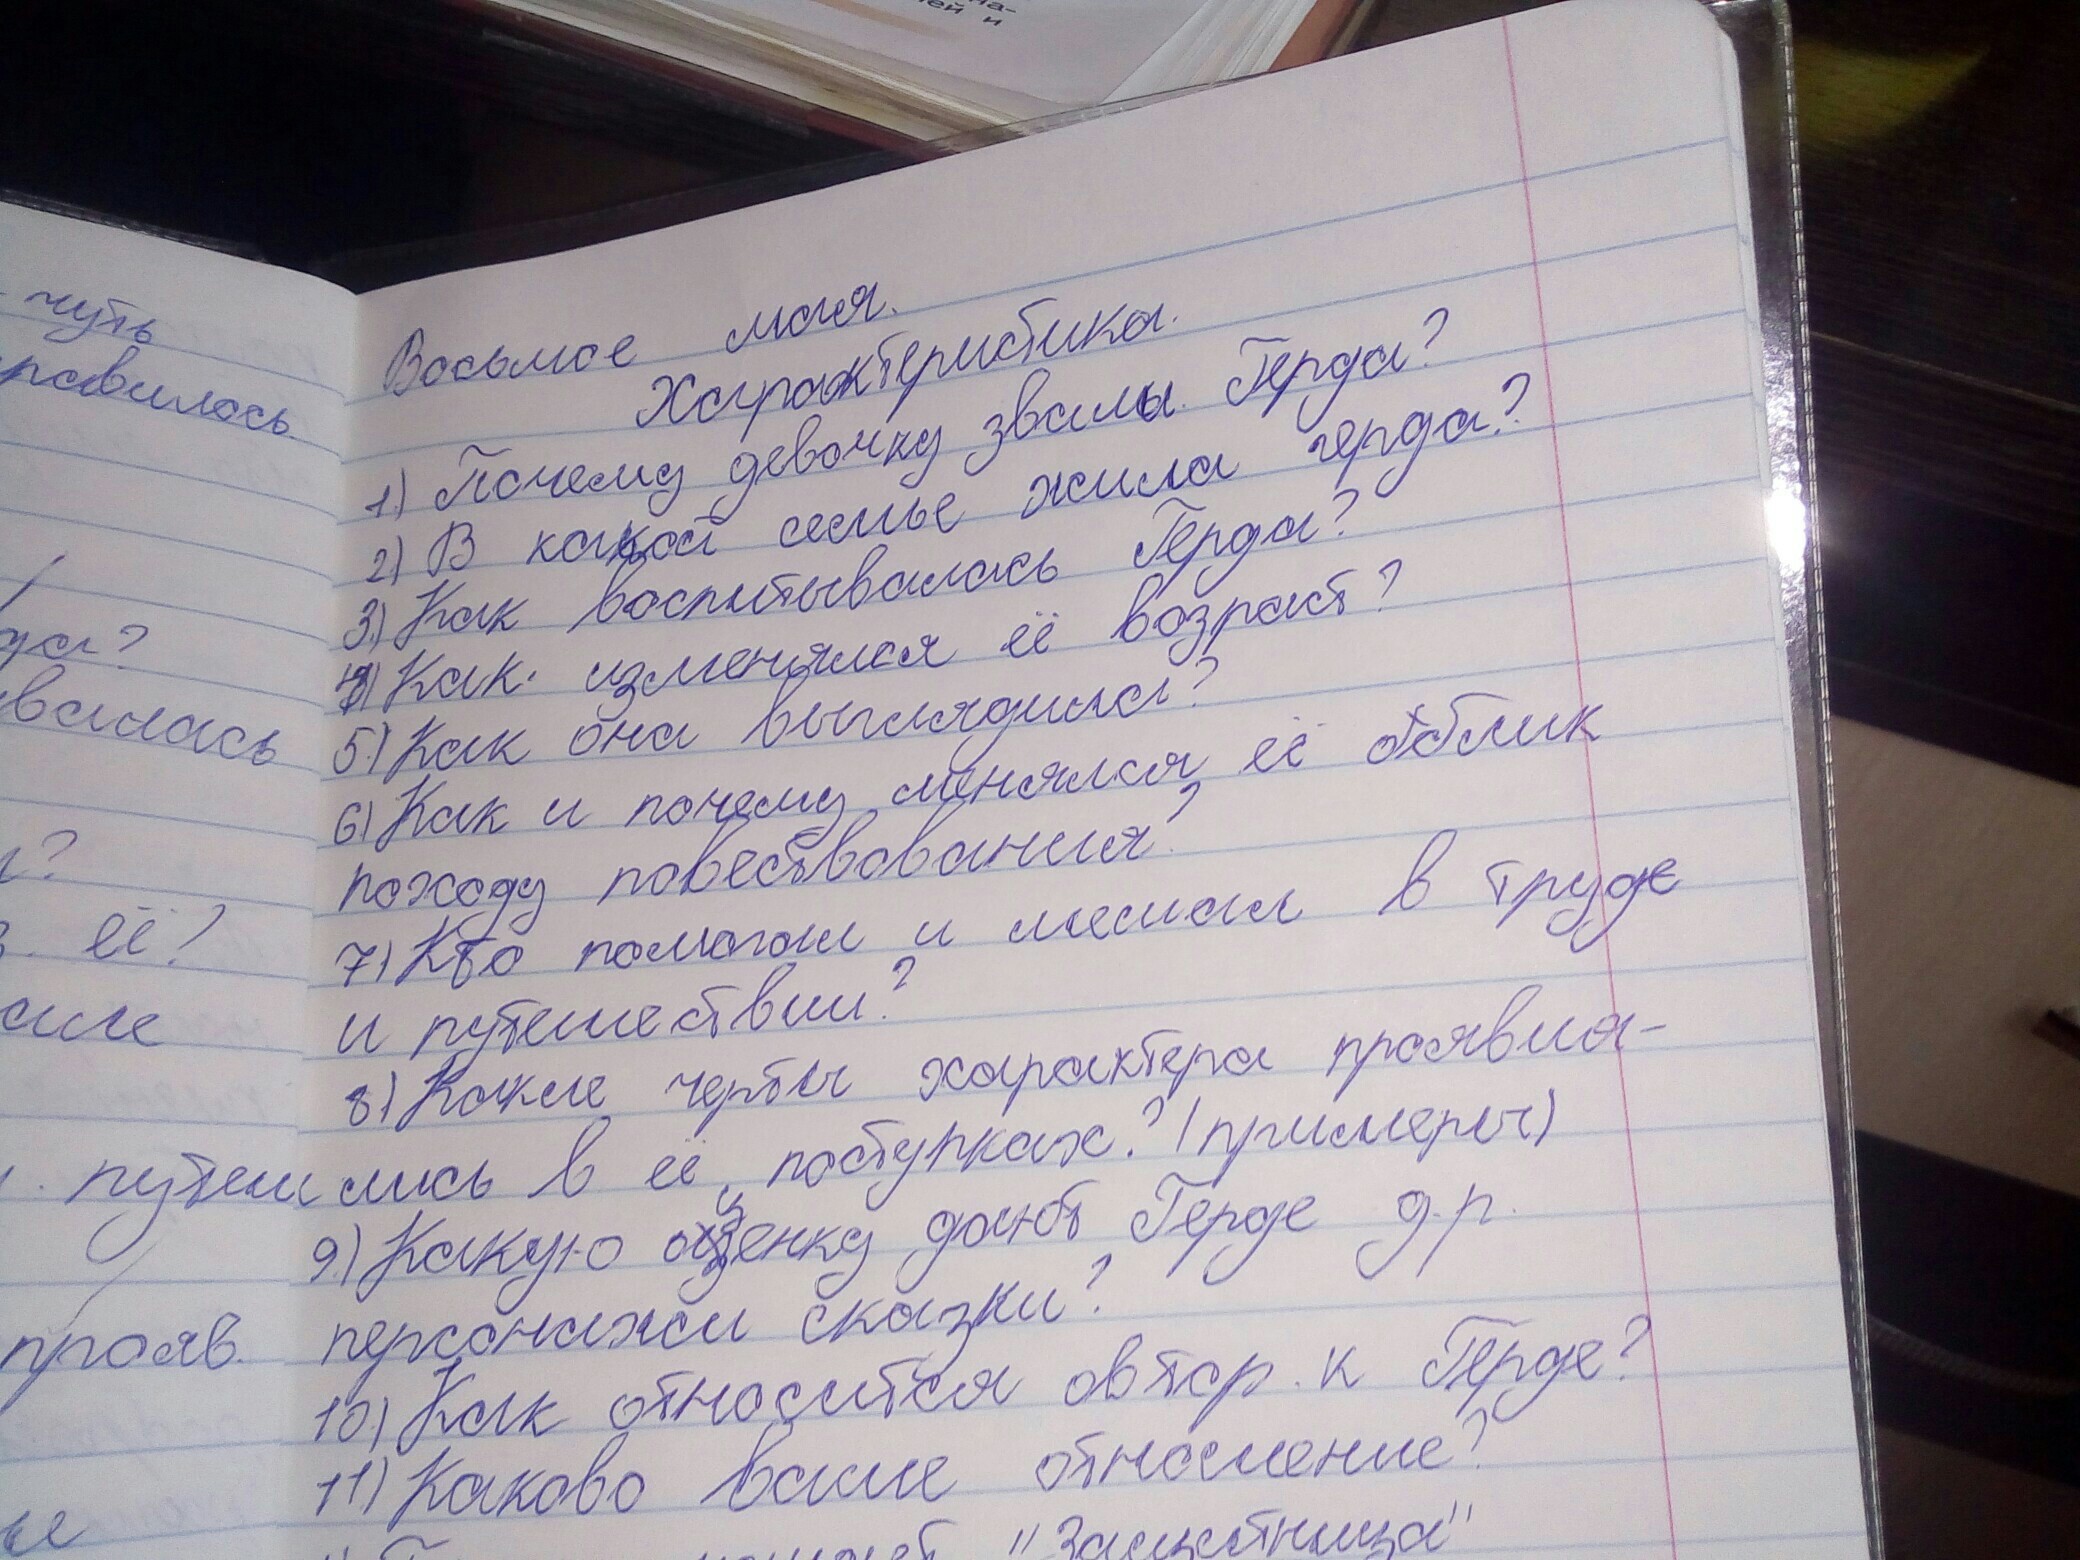 ма-
ей и
чуть
равилось
да?
валась
?
её?
путеш
прояв.
Восьмое мая.
Характеристика.
1.) Почему девочку звали Герда?
2) В какой семье жила герда?
3.) Как воспитывалась Герда?
4) Как изменялся её возраст?
5.) Как она выглядила?
6) Как и почему менялся её облик
походу повествования?
7) Кто помогал и мешал в труде
и путешествии?
8) Какие черты характера проявля-
лись в её поступках? (примеры)
9.) Какую оценку дают Герде д.р.
персонажи сказки?
10) Как относится автор к Герде?
11) Каково ваше отношение?
"Защитница"